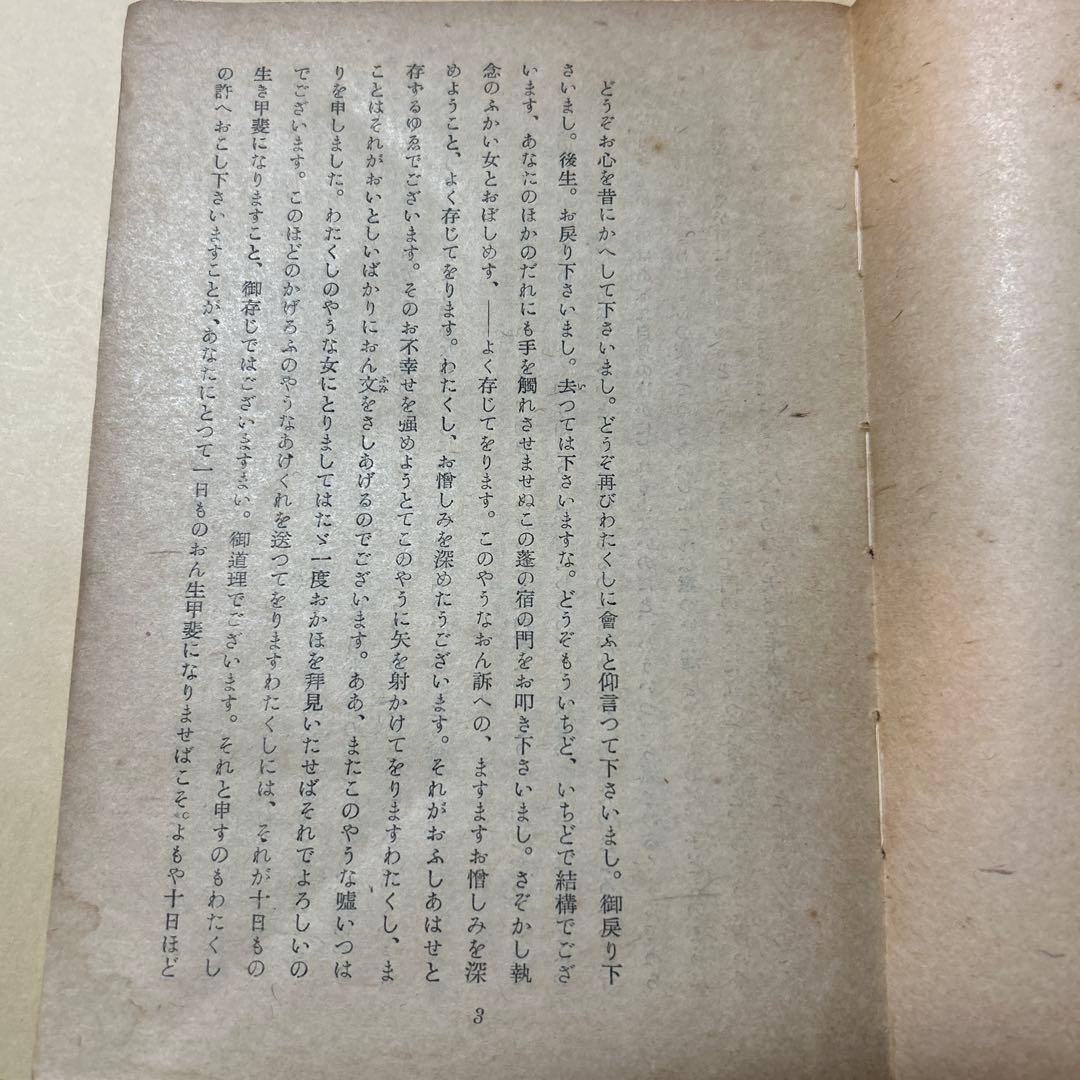 どうぞお心を昔にかへして下さいまし。どうぞ再びわたくしに會ふと仰言つて下さいまし。御戻り下
さいまし。後生。お戻り下さいまし。去つては下さいますな。どうぞもういちど、いちどで結構でござ
います、あなたのほかのだれにも手を觸れさせませぬこの蓬の宿の門をお叩き下さいまし。さぞかし執
念のふかい女とおぼしめす、――よく存じてをります。このやうなおん訴への、ますますお憎しみを深
めようこと、よく存じてをります。わたくし、お憎しみを深めたうございます。それがおふしあはせと
存ずるゆゑでございます。そのお不幸せを强めようとてこのやうに矢を射かけてをりますわたくし、ま
ことはそれがおいとしいばかりにおん文をさしあげるのでございます。ああ、またこのやうな噓いつは
りを申しました。わたくしのやうな女にとりましてはたゞ一度おかほを拜見いたせばそれでよろしいの
でございます。このほどのかげろふのやうなあけくれを送つてをりますわたくしには、それが十日もの
生き甲斐になりますこと、御存じではございますまい。御道理でございます。それと申すのもわたくし
の許へおこし下さいますことが、あなたにとつて一日ものおん生甲斐になりませばこそ。よもや十日ほど
い
ふみ
3